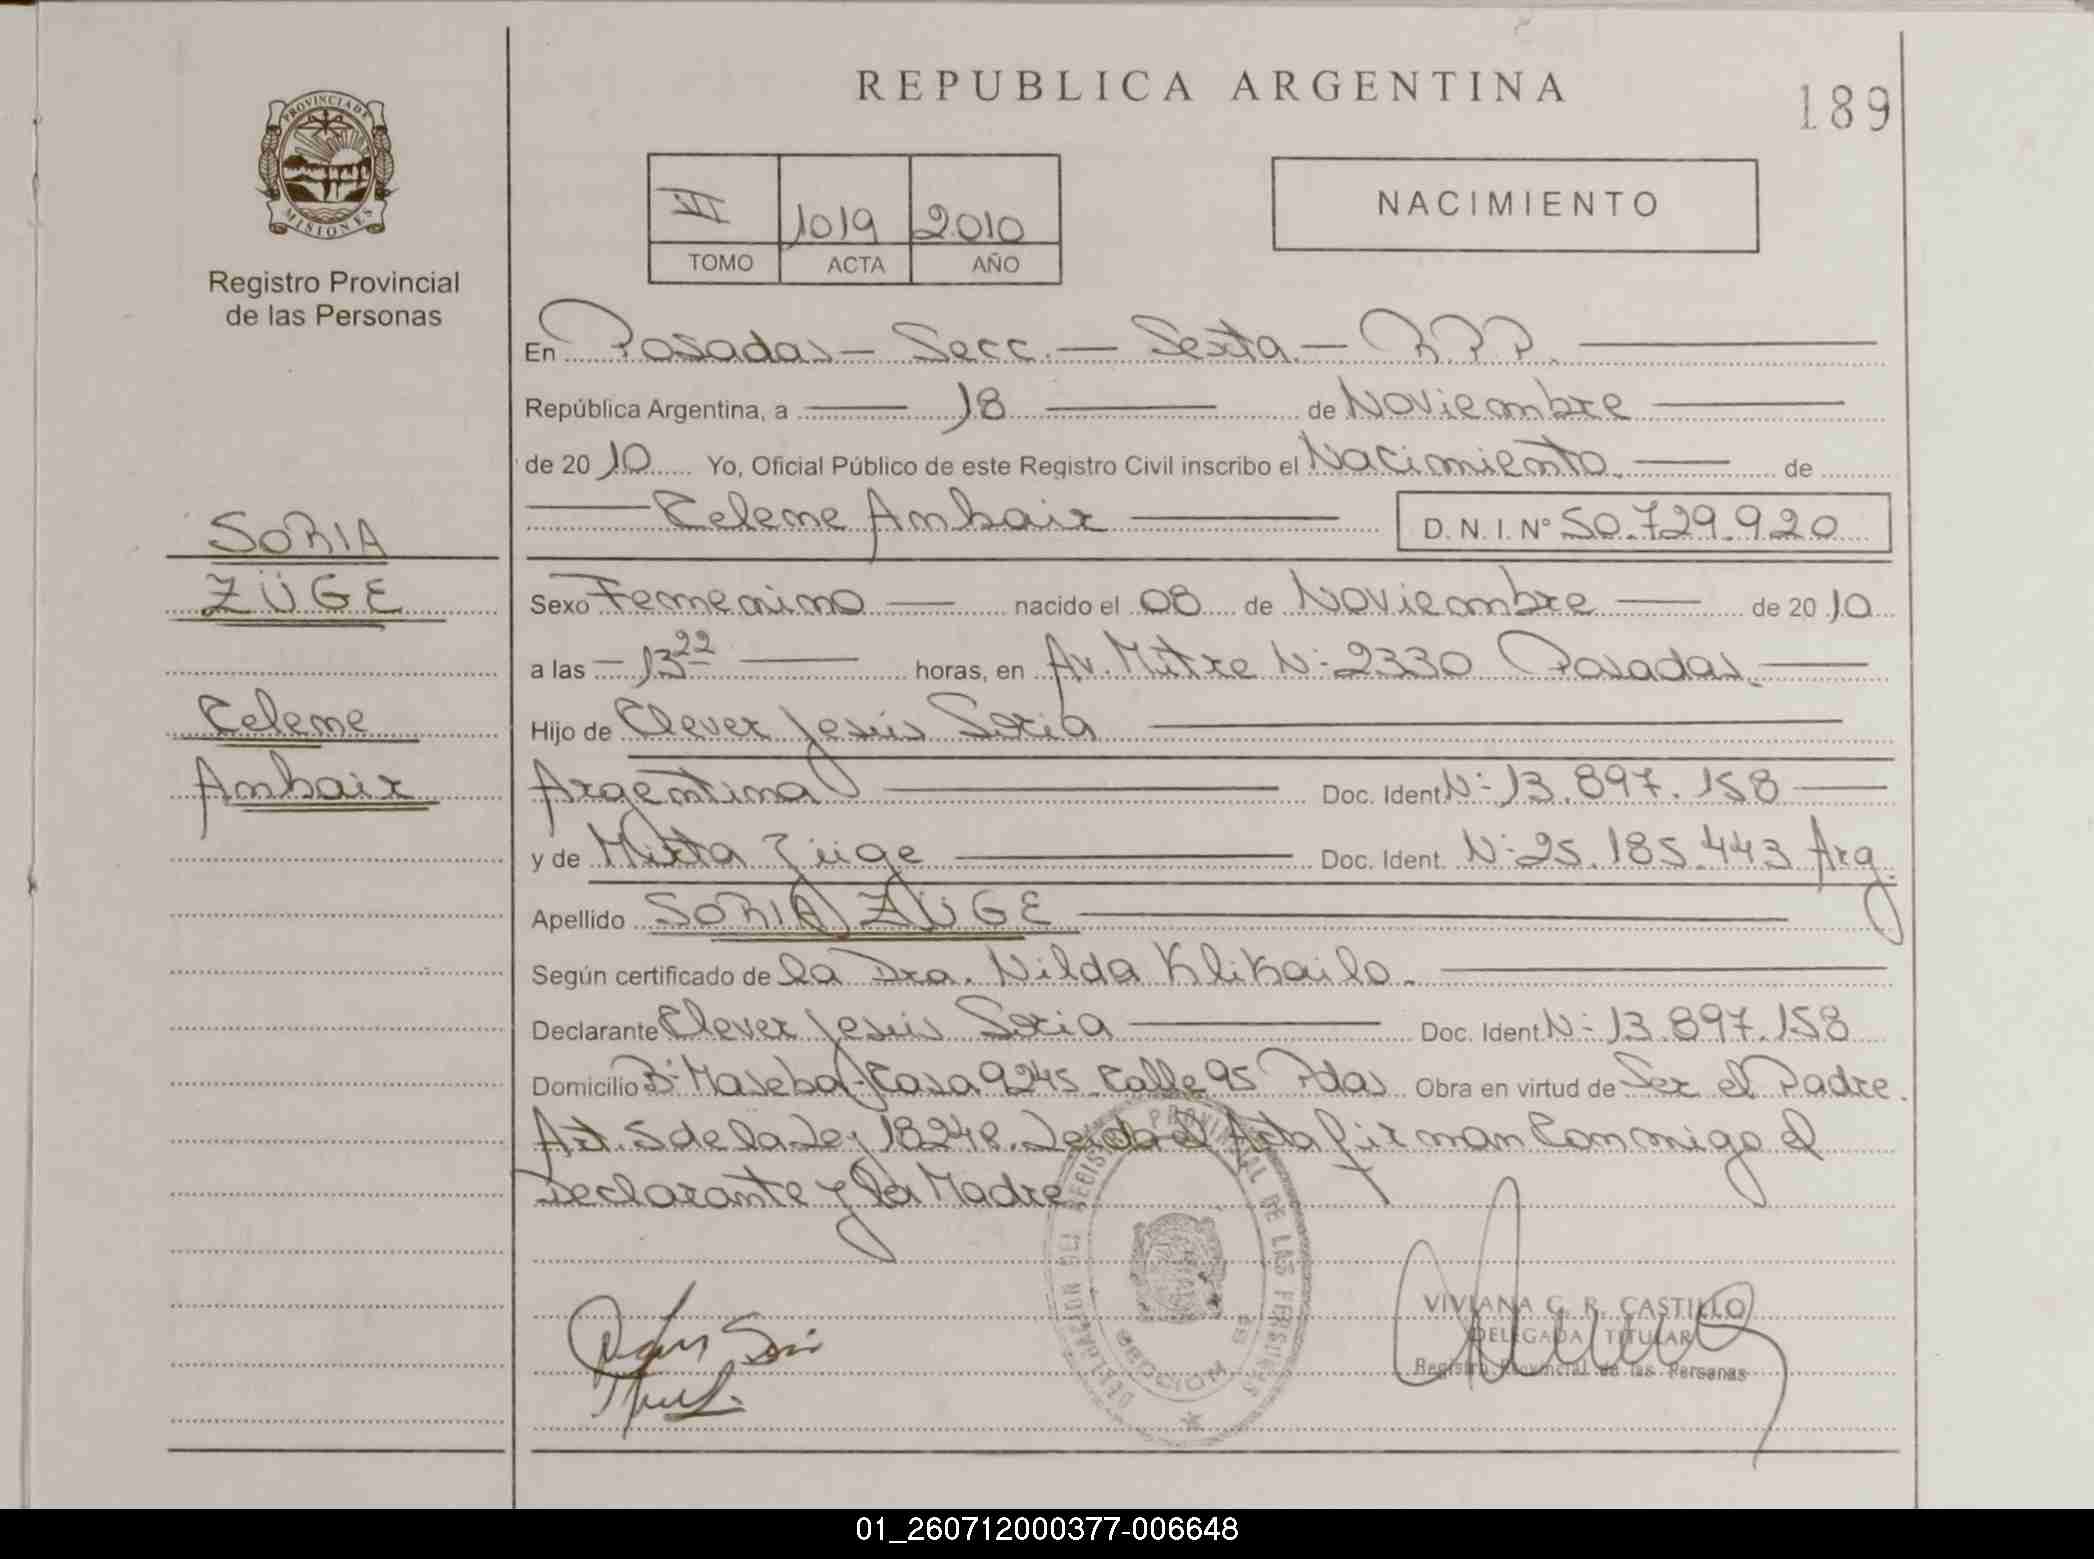 REPUBLICA ARGENTINA
189
PROVINCIA DE
MISIONES
Registro Provincial
de las Personas
VII 1019 2010
TOMO ACTA AÑO
NACIMIENTO
En Posadas - Secc. - Sexta - R.P.P.
República Argentina, a 18 de Noviembre
de 2010 Yo, Oficial Público de este Registro Civil inscribo el Nacimiento. de
Celeme Ambair
D.N.I. Nº 50.729.920
SORIA
ZÜGE
Celeme
Ambair
Sexo Femenino nacido el 08 de Noviembre de 2010
a las 13 22 horas, en Av. Mitre Nº 2330 Posadas.
Hijo de Clever Jesús Soria
Argentina Doc. Ident. Nº 13.897.158
y de Mirta Züge Doc. Ident. Nº 25.185.443 Arg.
Apellido SORIA ZÜGE
Según certificado de la Dra. Nilda Klikailo.
Declarante Clever Jesús Soria Doc. Ident. Nº 13.897.158
Domicilio Bº Casa 9245 Calle 95 Pdas. Obra en virtud de Ser el Padre.
Art. 5 de la Ley 18248. Leida el Acta firman Conmigo el
Declarante y la Madre
DELEGACION DEL REGISTRO PROVINCIAL DE LAS PERSONAS
SECCION
VIVIANA G. R. CASTILLO
DELEGADA TITULAR
Registro Provincial de las Personas
01_260712000377-006648